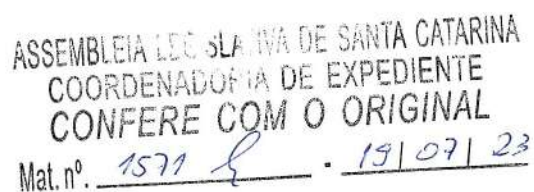 ASSEMBLEIA LEGISLATIVA DE SANTA CATARINA
COORDENADORIA DE EXPEDIENTE
CONFERE COM O ORIGINAL
Mat. nº. 1571 . 19/07/23